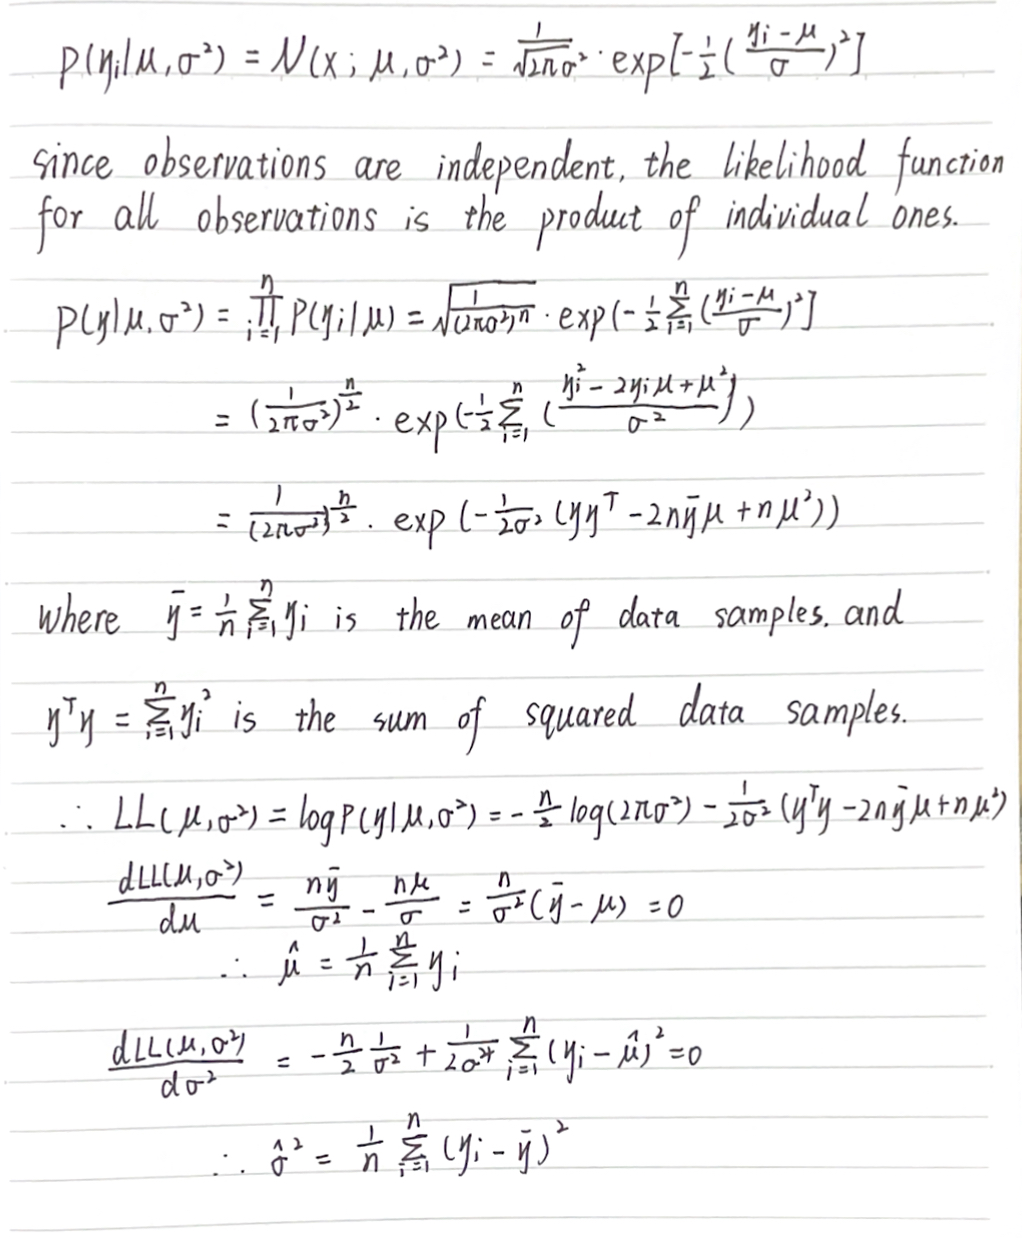 p(yi|μ, σ²) = N(x; μ, σ²) = 1/√2πσ² · exp[-1/2 ( (yi - μ)/σ )²]
since observations are independent, the likelihood function
for all observations is the product of individual ones.
p(y|μ, σ²) = ∏_{i=1}^{n} P(yi|μ) = √(1/(2πσ²)ⁿ) · exp(-1/2 ∑_{i=1}^{n} ( (yi - μ)/σ )²]
= (1/2πσ²)^{n/2} · exp(-1/2 ∑_{i=1}^{n} ( (yi² - 2yiμ + μ²)/σ² ))
= 1/(2πσ²)^{n/2} · exp(-1/2σ² (yyᵀ - 2nȳμ + nμ²))
where ȳ = 1/n ∑_{i=1}^{n} yi is the mean of data samples. and
yᵀy = ∑_{i=1}^{n} yi² is the sum of squared data samples.
∴ LL(μ, σ²) = log P(y|μ, σ²) = - n/2 log(2πσ²) - 1/2σ² (yᵀy - 2nȳμ + nμ²)
dLL(μ, σ²)/dμ = nȳ/σ² - nμ/σ = n/σ² (ȳ - μ) = 0
∴ μ̂ = 1/n ∑_{i=1}^{n} yi
dLL(μ, σ²)/dσ² = - n/2 1/σ² + 1/2σ⁴ ∑_{i=1}^{n} (yi - μ̂)² = 0
∴ σ̂² = 1/n ∑_{i=1}^{n} (yi - ȳ)²